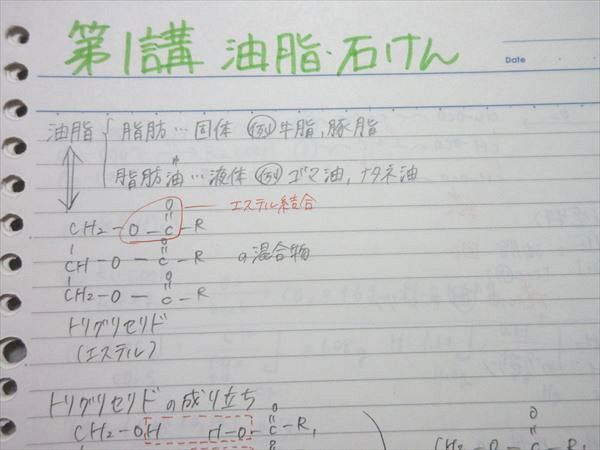 第1講 油脂・石けん
Date
油脂 { 脂肪…固体 (例) 牛脂, 豚脂
脂肪油…液体 (例) ゴマ油, ナタネ油
O
エステル結合
CH2-O-C-R
O
CH-O-C-R の混合物
O
CH2-O-C-R
トリグリセリド
(エステル)
トリグリセリドの成り立ち
O
CH2-OH H-O-C-R1
O
CH2-O-C-R